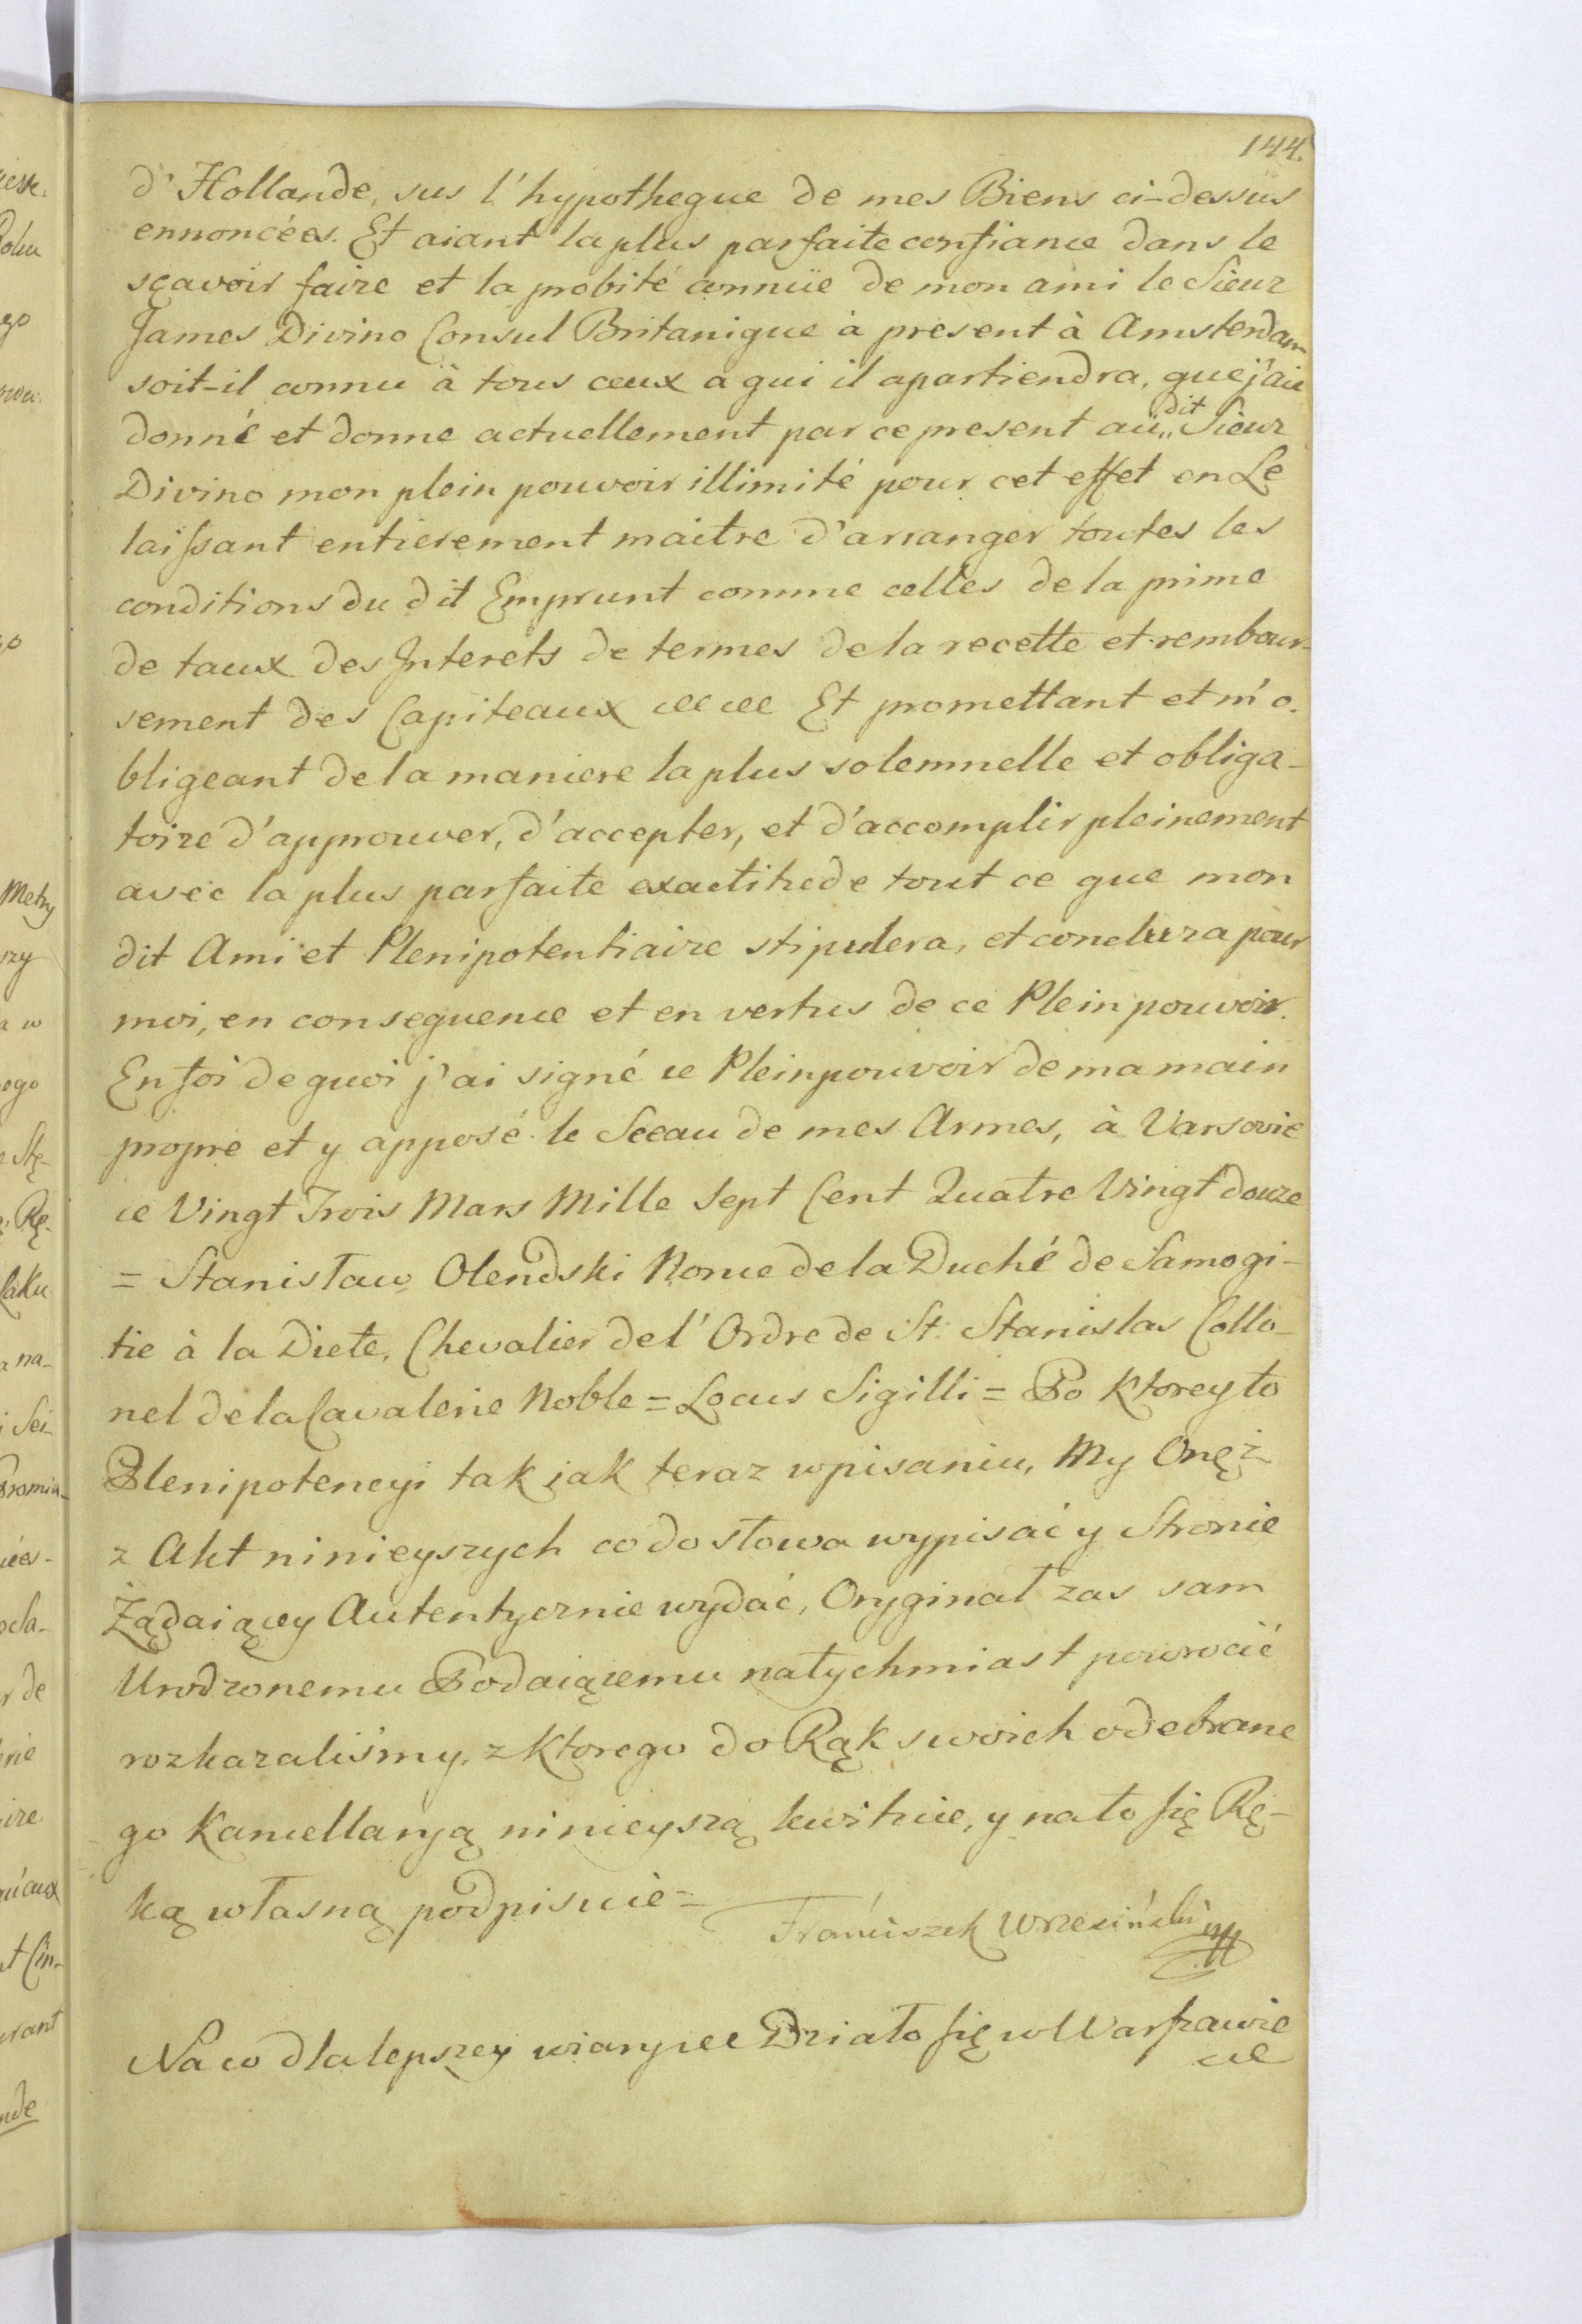 144.
d'Hollande, sus l'hypotheque de mes Biens ci-dessus
ennoncées. Et aiant la plus parfaite confiance dans le
sçavoir faire et la probité connüe de mon ami le Sieur
James Divino Consul Britanique à present à Amsterdam
soit-il connu à tous ceux a qui il apartiendra, que j'aie
donné et donne actuellement par ce present au dit Sieur
Divino mon plein pouvoir illimité pour cet effet en Le
laissant entierement maitre d'arranger toutes les
conditions du dit Emprunt comme celles de la prime
de taux des Interets de termes de la recette et rembour-
sement des Capiteaux cc cc Et promettant et m'o-
bligeant de la maniere la plus solemnelle et obliga-
toire d'approuver, d'accepter, et d'accomplir pleinement
avec la plus parfaite exactitude tout ce que mon
dit Ami et Plenipotentiaire stipulera, et conclura pour
moi, en consequence et en vertus de ce Plein pouvoir.
En foi de quoi j'ai signé ce Pleinpouvoir de ma main
propre et y apposé le Sceau de mes Armes, à Varsovie
ce Vingt Trois Mars Mille Sept Cent Quatre Vingt douze
= Stanisław Olendski Nonce de la Duché de Samogi-
tie à la Diete, Chevalier de l'Ordre de St. Stanislas Collo-
nel de la Cavalerie Noble = Locus Sigilli = Po Ktorey to
Plenipotencyi tak jak teraz wpisaniu, My Onęż
z Akt ninieyszych co do słowa wypisać y Stronie
Żądaiącey Autentycznie wydać, Oryginał zas sam
Urodzonemu Podaiącemu natychmiast powrocić
rozkazaliśmy, z Ktorego do Rąk swoich odebrane
go Kancellaryą ninieyszą kwituie, y na to się Rę-
ką własną podpisuie =
Franciszek Wrzesiński
Na co dla lepszey wiary cc Działo się w Warszawie
cc